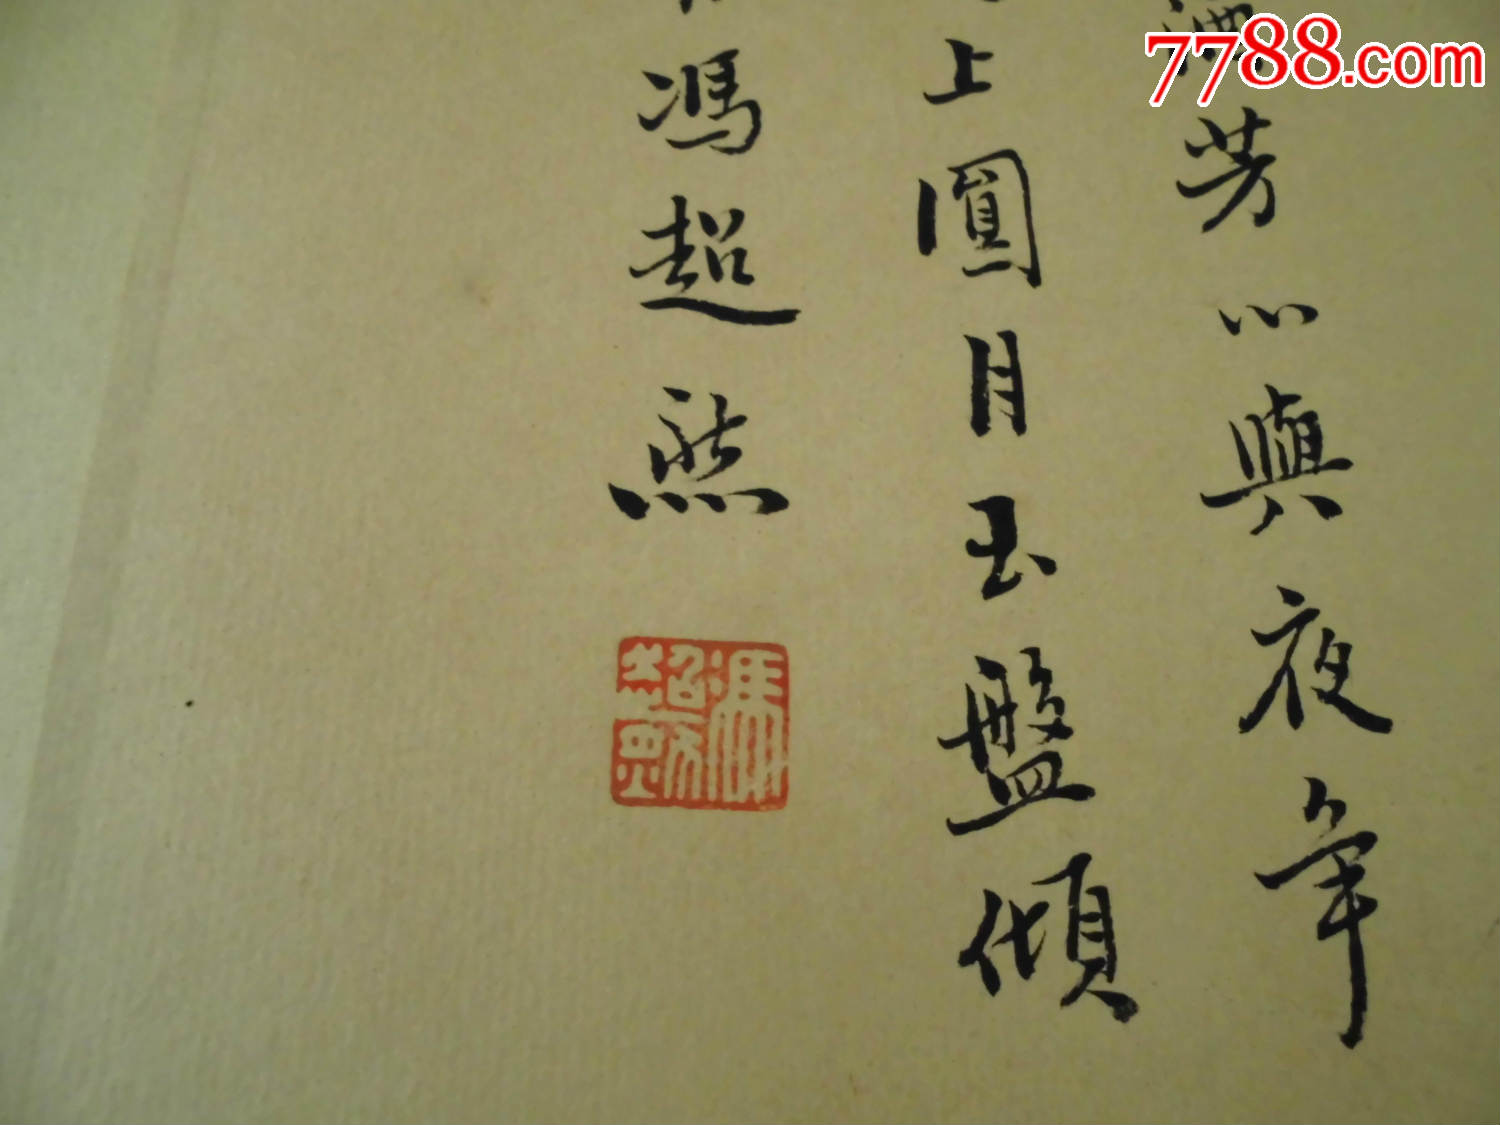 7788.com
芳心與夜争
上圓月玉盤傾
馮超然
馮超然印